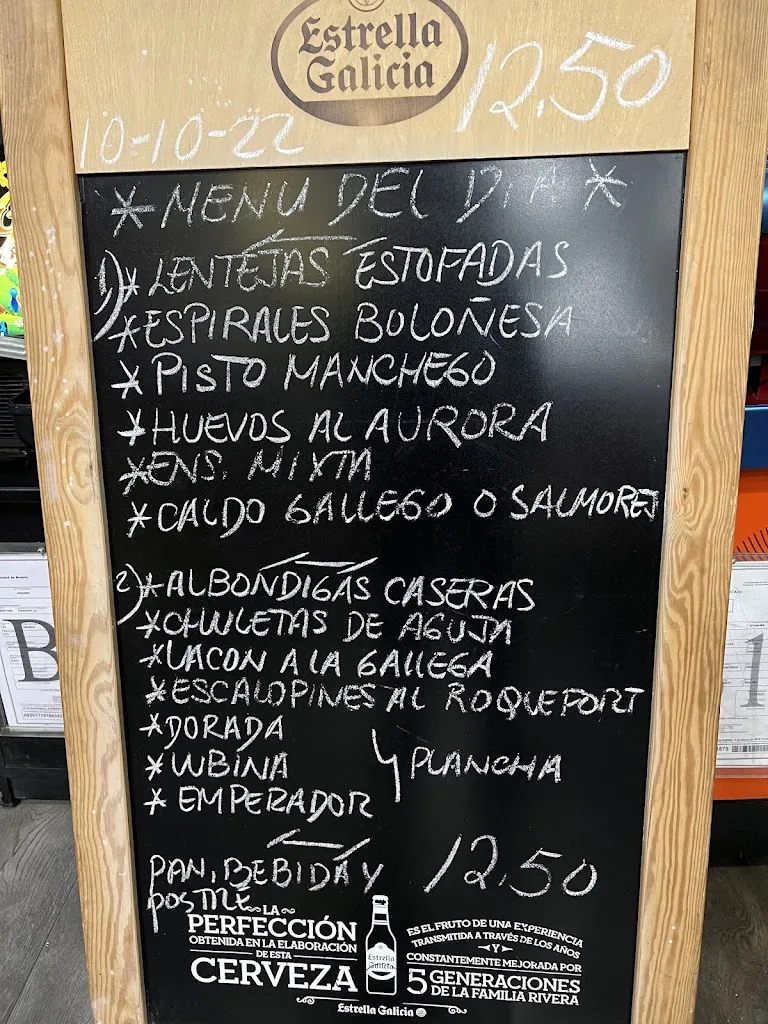 Estrella
Galicia
12,50
10-10-22
* MENU DEL DIA *
1) * LENTEJAS ESTOFADAS
* ESPIRALES BOLOÑESA
* PISTO MANCHEGO
* HUEVOS AL AURORA
* ENS. MIXTA
* CALDO GALLEGO O SALMOREJ
2) * ALBONDIGAS CASERAS
* CHULETAS DE AGUJA
* LACON A LA GALLEGA
* ESCALOPINES AL ROQUEFORT
* DORADA
* LUBINA
PLANCHA
* EMPERADOR
PAN, BEBIDA Y 12,50
POSTRE
LA
PERFECCIÓN
OBTENIDA EN LA ELABORACIÓN
DE ESTA
CERVEZA
Estrella
Galicia
ES EL FRUTO DE UNA EXPERIENCIA
TRANSMITIDA A TRAVÉS DE LOS AÑOS
Y
CONSTANTEMENTE MEJORADA POR
5 GENERACIONES
DE LA FAMILIA RIVERA
Estrella Galicia
B
1